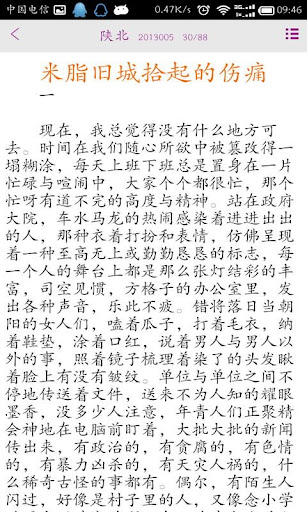 中国电信 0.47K/s 09:46
陕北 2013005 30/88
米脂旧城拾起的伤痛
一
现在，我总觉得没有什么地方可
去。时间在我们随心所欲中被篡改得一
塌糊涂，每天上班下班总是置身在一片
忙碌与喧闹中，大家个个都很忙，那个
忙呀有道不完的高度与精神。站在政府
大院，车水马龙的热闹感染着进进出出
的人，那种衣着打扮和表情，仿佛呈现
着一种至高无上或勤勤恳恳的标志，每
一个人的舞台上都是那么张灯结彩的丰
富，司空见惯，方格子的办公室里，发
出各种声音，乐此不疲。错将落日当朝
阳的女人们，嗑着瓜子，打着毛衣，纳
着鞋垫，涂着口红，说着男人与男人以
外的事，照着镜子梳理着染了的头发瞅
着脸上有没有皱纹。单位与单位之间不
停地传送着文件，送来不为人知的耀眼
墨香，没多少人注意，年青人们正聚精
会神地在电脑前盯着，大批大批的新闻
传出来，有政治的，有贪腐的，有色情
的，有暴力凶杀的，有天灾人祸的，什
么稀奇古怪的事都有。偶尔，有陌生人
闪过，好像是村子里的人，又像念小学